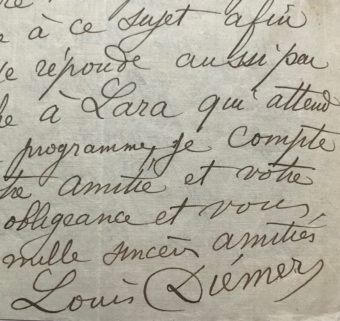 à ce sujet afin
je réponde aussi par
à Lara qui attend
programme, je compte
amitié et votre
obligeance et vous
mille sincères amitiés
Louis Diémer